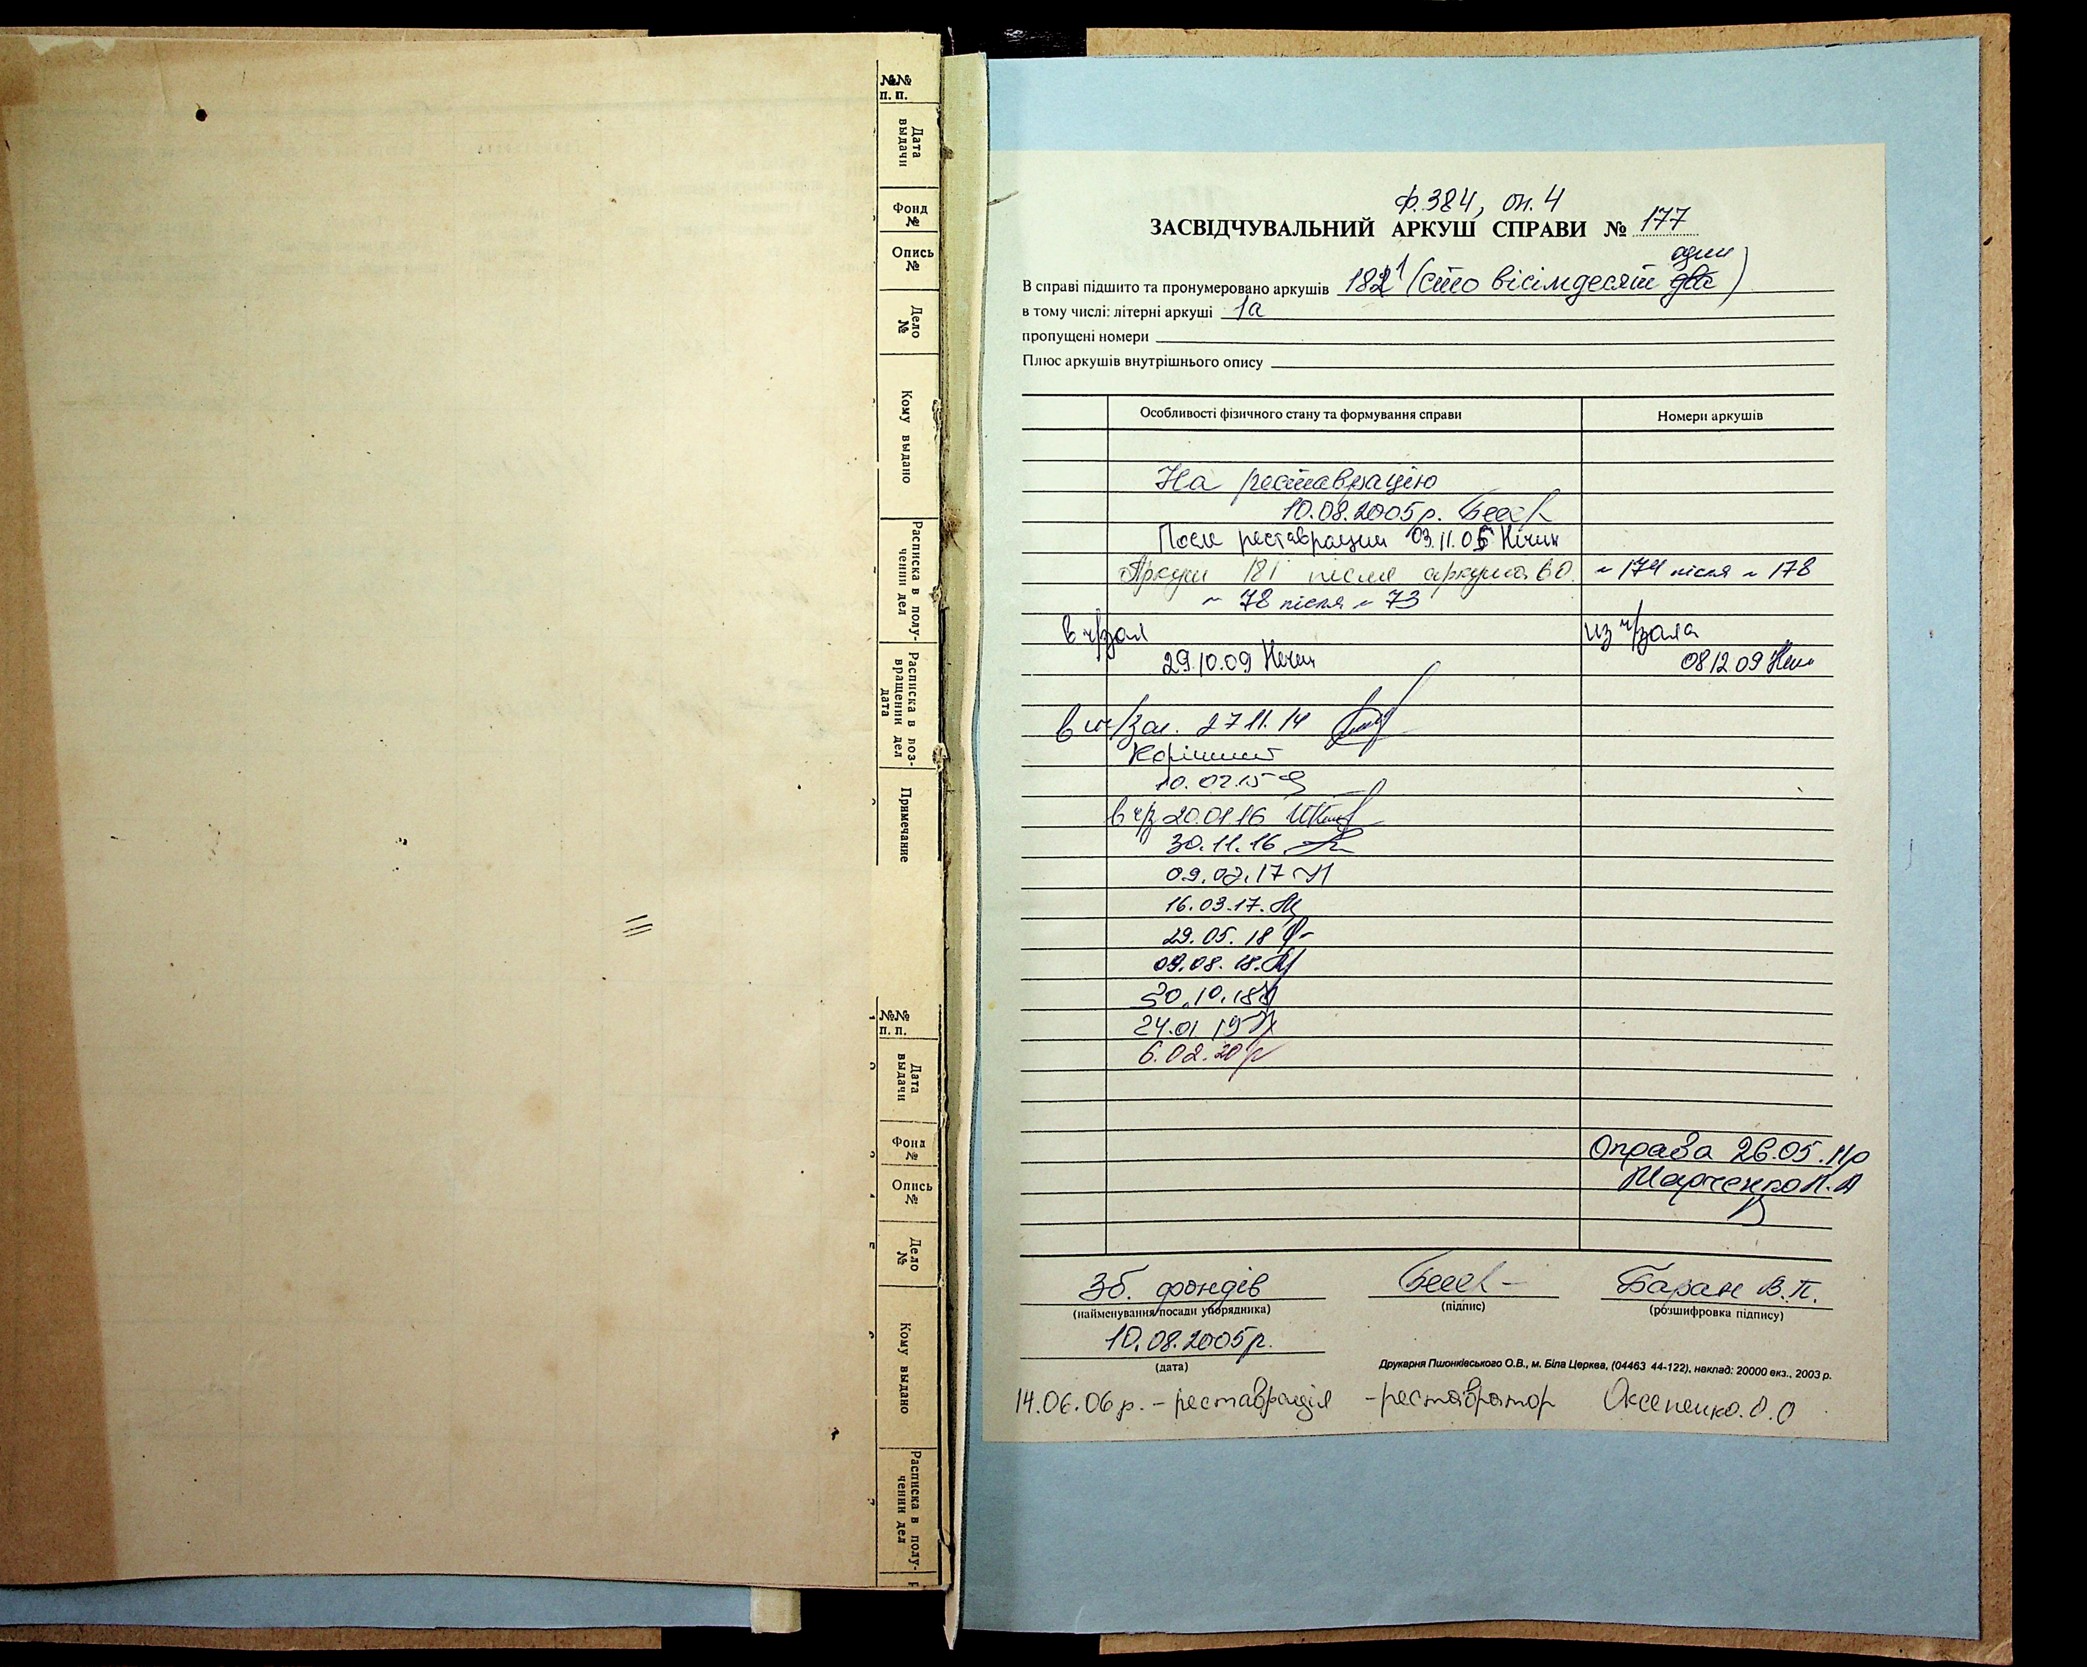 №№
п. п.
Дата
выдачи
Фонд
№
Опись
№
Дело
№
Кому выдано
Расписка в полу-
чении дел
Расписка в воз-
вращении дел
дата
Примечание
№№
п. п.
Дата
выдачи
Фонд
№
Опись
№
Дело
№
Кому выдано
Расписка в полу-
чении дел
ф. 384, оп. 4
ЗАСВІДЧУВАЛЬНИЙ АРКУШ СПРАВИ № 177
один
В справі підшито та пронумеровано аркушів 182 1 (сто вісімдесят два)
в тому числі: літерні аркуші 1а
пропущені номери
Плюс аркушів внутрішнього опису
Особливості фізичного стану та формування справи Номери аркушів
На реставрацію
10.08.2005р.
После реставрации 03.11.06
Аркуш 181 після аркуша 60. ~ 174 після ~ 178
~ 78 після ~ 73
в ч/зал из ч/зала
29.10.09 08.12.09
в ч/зал. 27.11.14
10.02.15
в ч/з 20.01.16
30.11.16
09.02.17
16.03.17.
29.05.18
09.08.18.
30.10.18
24.01 19
6.02.20
Оправа 26.05.11р
Марченко Л.А
Зб. фондів Баран В.П.
(найменування посади упорядника) (підпис) (розшифровка підпису)
10.08.2005р.
(дата)
Друкарня Пшонківського О.В., м. Біла Церква, (04463 44-122), наклад: 20000 екз., 2003 р.
14.06.06 р. – реставрація – реставратор Оксененко.О.О